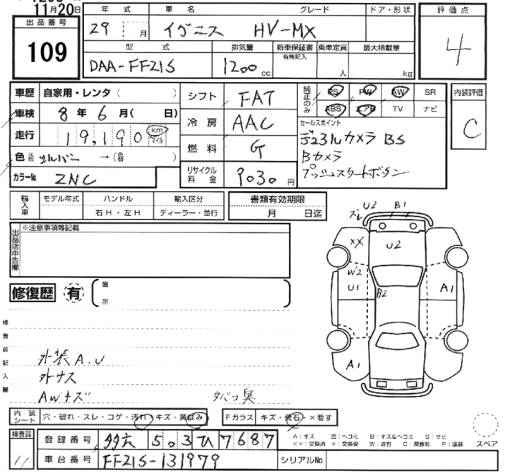 11月20日
出品番号
109
年式 車名 グレード ドア・形状
29 月 イグニス HV-MX
型式 排気量 新車保証書 乗車定員 最大積載量
有無記入
DAA-FF21S 1200cc 人 kg
評価点
4
車歴 自家用・レンタ( )
車検 8年6月( 日)
走行 19,190 km マイル
色 シルバー →( )
カラーNo. ZNC
シフト FAT
冷房 AAC
燃料 G
リサイクル料金 9030円
純正のみ PS PW AW SR
ABS エアB TV ナビ
セールスポイント
デュアルカメラBS
Bカメラ
プッシュスタートボタン
内装評価
C
輸入車 モデル年式 ハンドル 輸入区分
右H・左H ディーラー・並行
書類有効期限
月 日迄
出品店申告欄
※注意事項等記載
修復歴 有
箇所
検査員記入欄
外装A.U
外キズ
AWキズ タバコ臭
U2 B1
ズレ
XX U2
W2
U1 B2 A1
A1
内装シート 穴・破れ・スレ・コゲ・汚れ・キズ・黄ばみ
Fガラス キズ・飛石・×要す
検査員
登録番号 503 ひ 7687
車台番号 FF21S-131979
シリアルNo.
A:キズ U:ヘコミ B:キズ&ヘコミ S:サビ
スペア